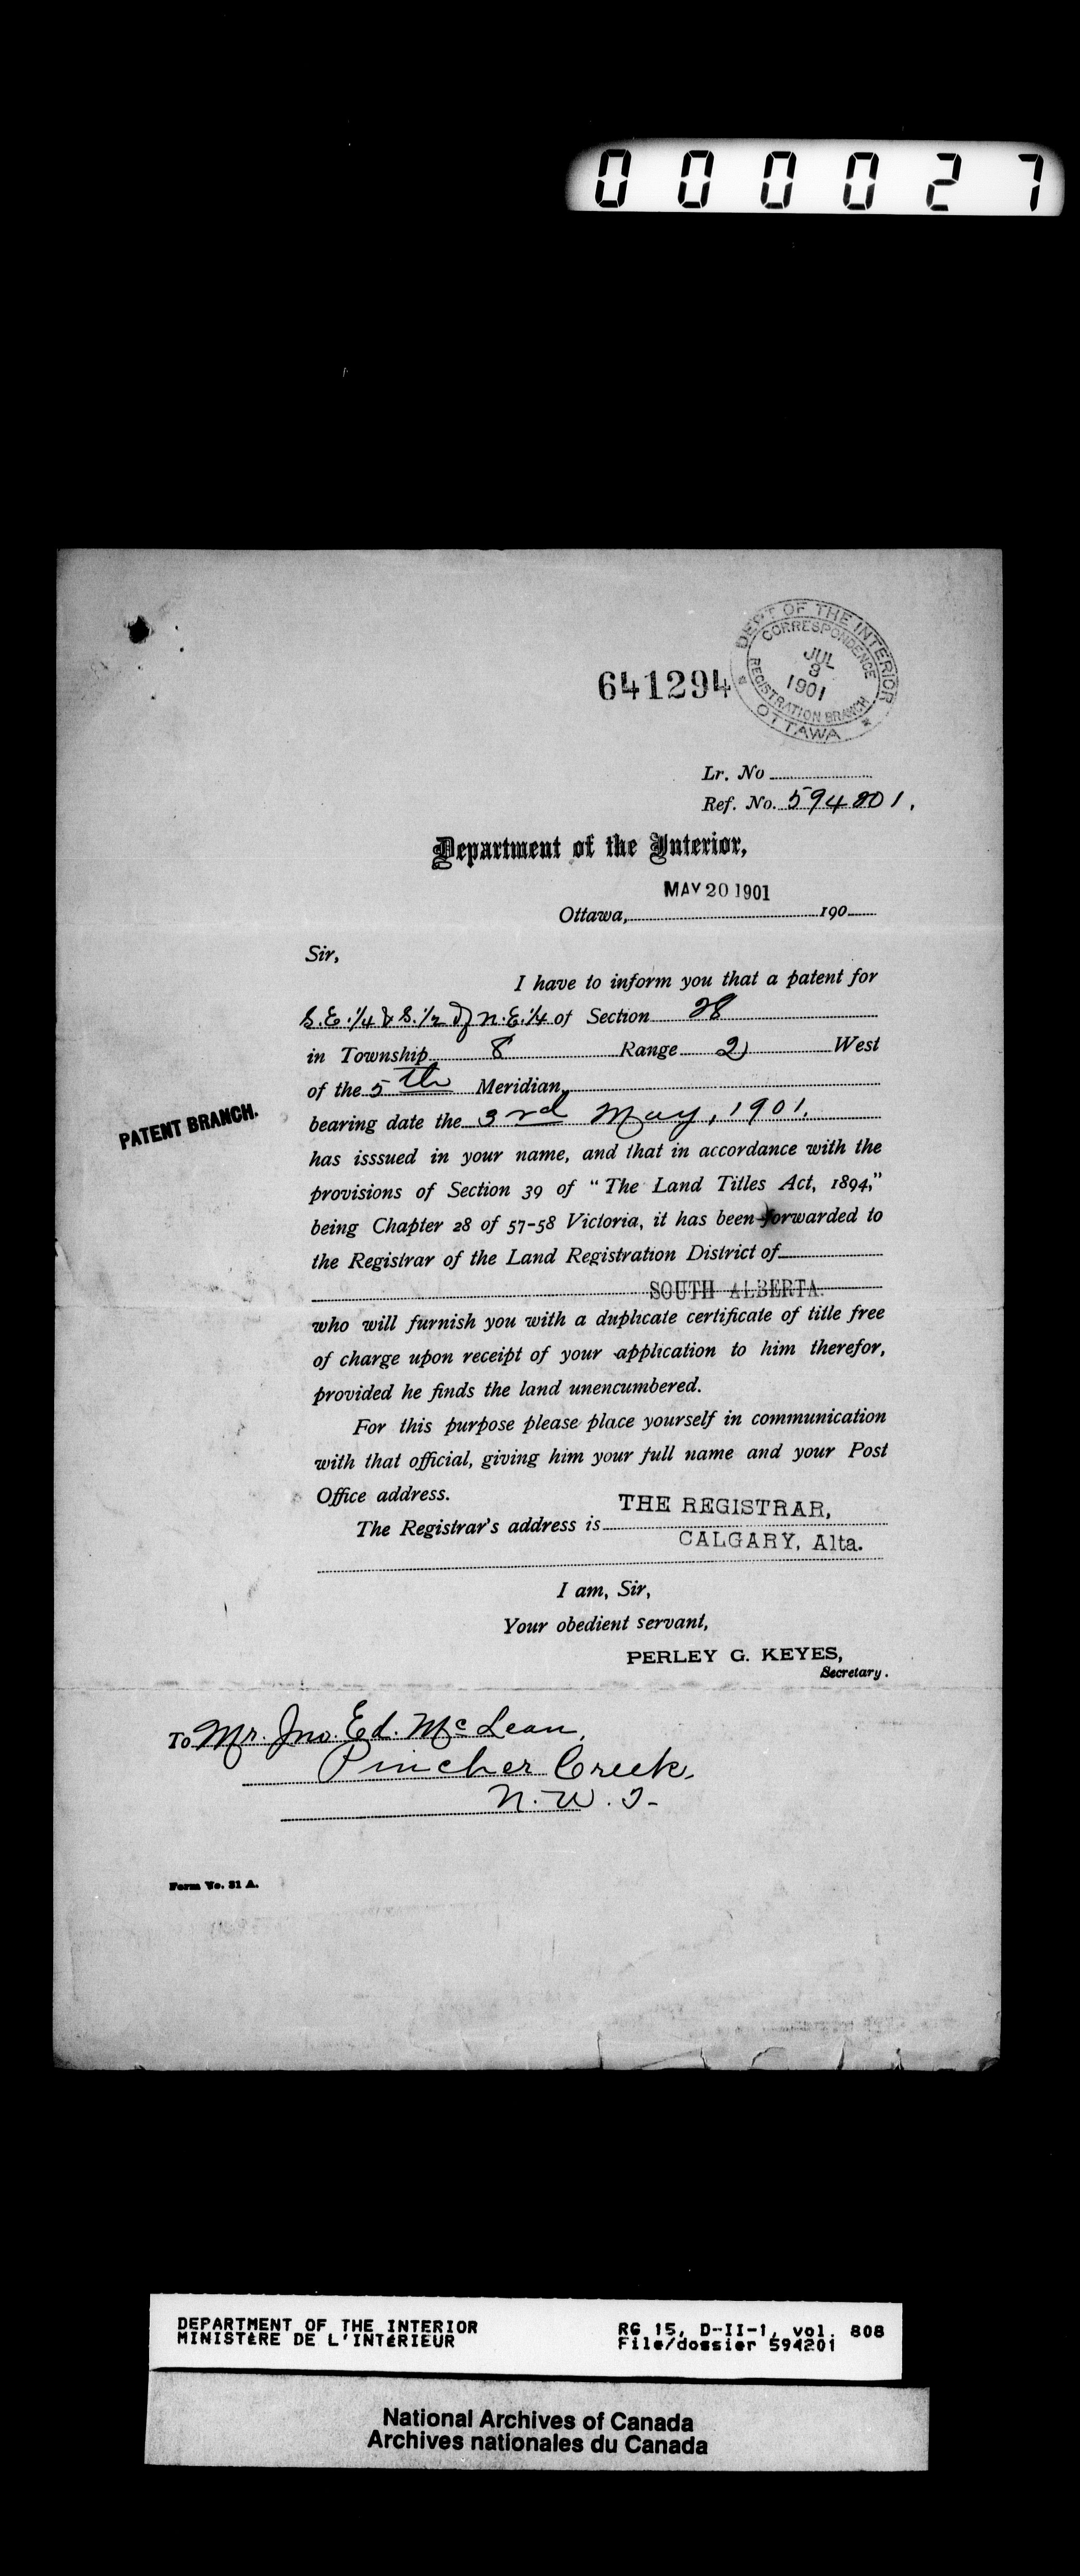 000027
DEPT OF THE INTERIOR
CORRESPONDENCE
JUL
1901
REGISTRATION BRANCH
OTTAWA
641294
Lr. No
Ref. No. 594801.
Department of the Interior,
MAY 20 1901
Ottawa, 190
Sir,
I have to inform you that a patent for
S.E. 1/4 & S. 1/2 of N.E. 1/4 of Section 28
in Township 8 Range 2 West
of the 5th Meridian,
PATENT BRANCH.
bearing date the 3rd May, 1901.
has isssued in your name, and that in accordance with the
provisions of Section 39 of "The Land Titles Act, 1894,"
being Chapter 28 of 57-58 Victoria, it has been forwarded to
the Registrar of the Land Registration District of
SOUTH ALBERTA.
who will furnish you with a duplicate certificate of title free
of charge upon receipt of your application to him therefor,
provided he finds the land unencumbered.
For this purpose please place yourself in communication
with that official, giving him your full name and your Post
Office address.
THE REGISTRAR,
The Registrar's address is
CALGARY, Alta.
I am, Sir,
Your obedient servant,
PERLEY G. KEYES,
Secretary.
To Mr. Jno. Ed. McLean,
Pincher Creek,
N.W.T.
Form No. 31 A.
DEPARTMENT OF THE INTERIOR
MINISTÈRE DE L'INTÉRIEUR
RG 15, D-II-1, vol. 808
File/dossier 594201
National Archives of Canada
Archives nationales du Canada